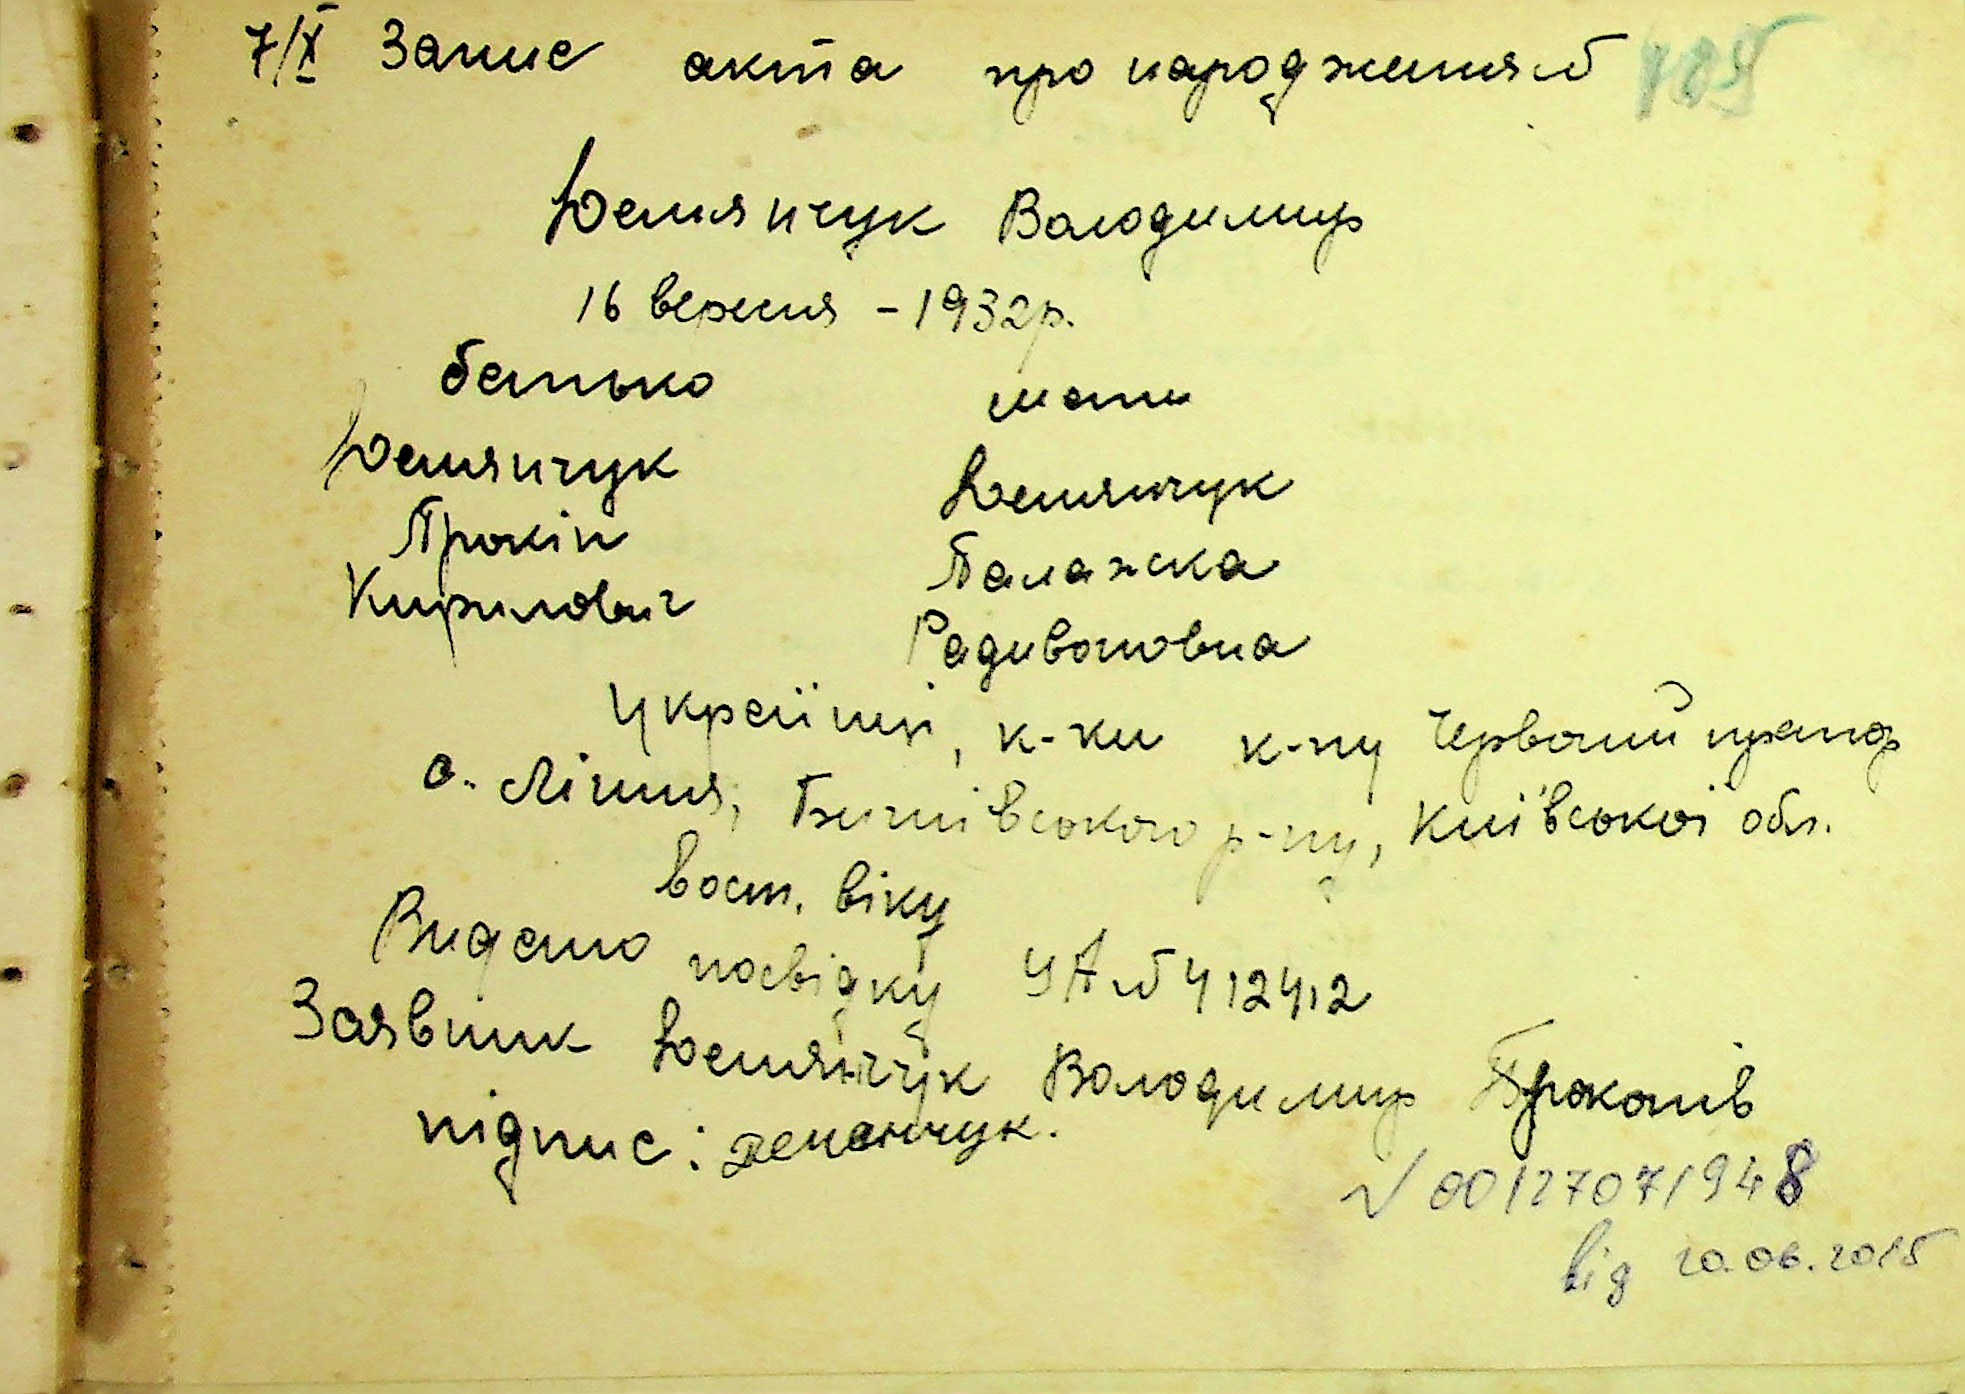 7/X Запис акта про народження №
Демянчук Володимир
16 вересня - 1932р.
батько мати
Демянчук Демянчук
Прокіп Палажка
Кирилович Радивоновна
Українці, к-ки к-пу Червоний прапор
с. Лічня, Бишівського р-ну, Київської обл.
вост. віку
Видано посвідку УА № 412412
Заявник Демянчук Володимир Прокопів
підпис: Деменчук.
√ 00127071948
від 20.06.2015